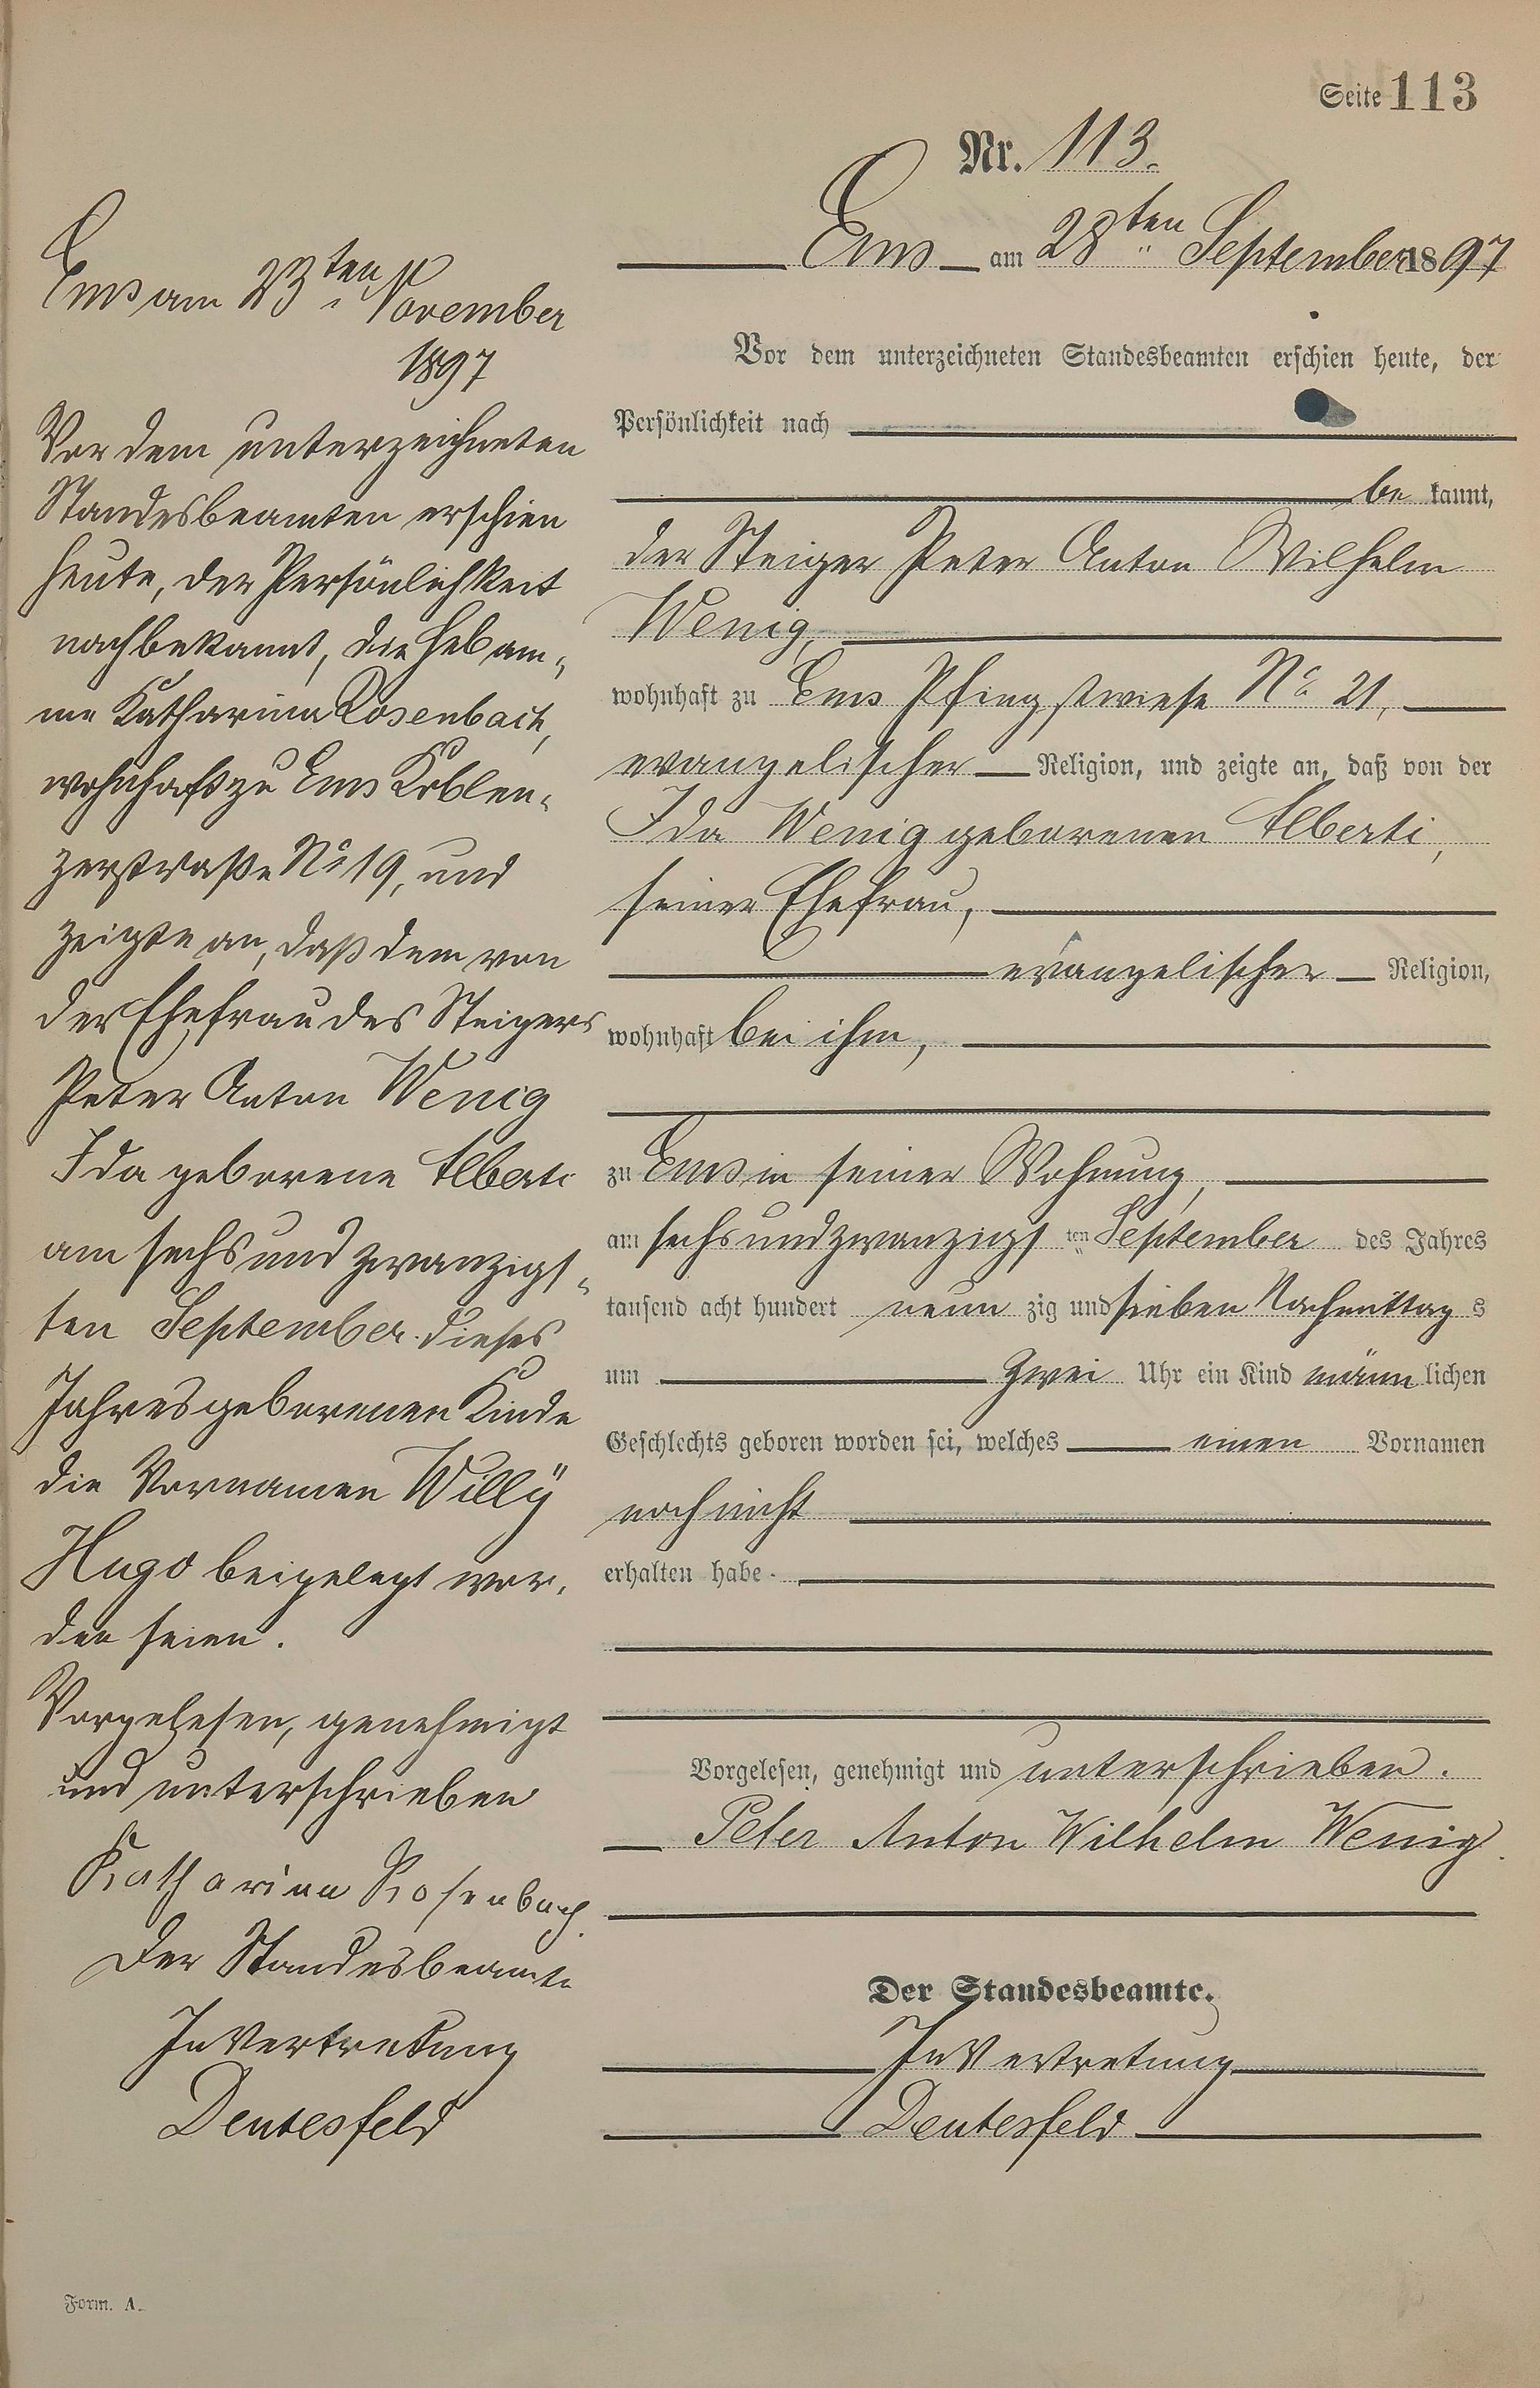 Seite 113
Nr. 113.
Ems am 28ten September 1897
Vor dem unterzeichneten Standesbeamten erschien heute, der
Persönlichkeit nach
be kannt,
der Steiger Peter Anton Wilhelm
Wenig,
wohnhaft zu Ems Pfingstwiese No 21,
evangelischer Religion, und zeigte an, daß von der
Ida Wenig geborenen Alberti,
seiner Ehefrau,
evangelischer Religion,
wohnhaft bei ihm,
zu Ems in seiner Wohnung,
am sechsundzwanzigsten September des Jahres
tausend acht hundert neun zig und sieben Nachmittag s
um zwei Uhr ein Kind männ lichen
Geschlechts geboren worden sei, welches einen Vornamen
noch nicht
erhalten habe.
Vorgelesen, genehmigt und unterschrieben.
Peter Anton Wilhelm Wenig.
Der Standesbeamte.
In Vertretung
Deutesfeld
Ems am 23ten November
1897
Vor dem unterzeichneten
Standesbeamten erschien
heute, der Persönlichkeit
nach bekannt, die Hebam-
me Katharina Rosenbach,
wohnhaft zu Ems Koblen-
zerstraße No 19, und
zeigte an, daß dem von
der Ehefrau des Steigers
Peter Anton Wenig
Ida geborene Alberti
am sechsundzwanzigs-
ten September dieses
Jahres geborenen Kinde
die Vornamen Willÿ
Hugo beigelegt wor-
den seien.
Vorgelesen, genehmigt
und unterschrieben
Katharina Rosenbach.
Der Standesbeamte
In Vertretung
Deutesfeld
Form. A.